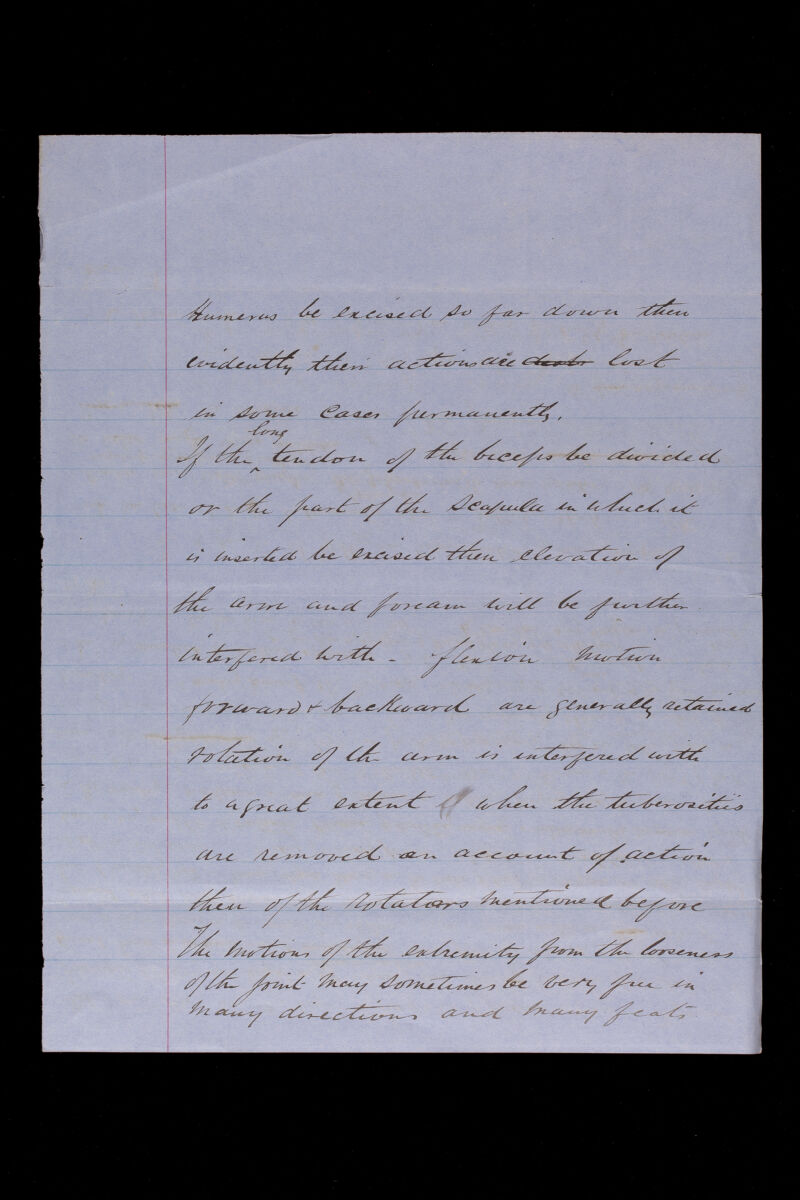 Humerus be excised so far down then
evidently their actions are lost
in some cases permanently.
If the long tendon of the biceps be divided
or the part of the scapula in which it
is inserted be excised then elevation of
the arm and foream will be further
interfered with - flexion motion
forward & backward are generally retained
rotation of the arm is interfered with
to a great extent when the tuberosities
are removed on account of action
then of the rotators mentioned before
The motions of the extremity from the looseness
of the joint may sometimes be very free in
many directions and many feats